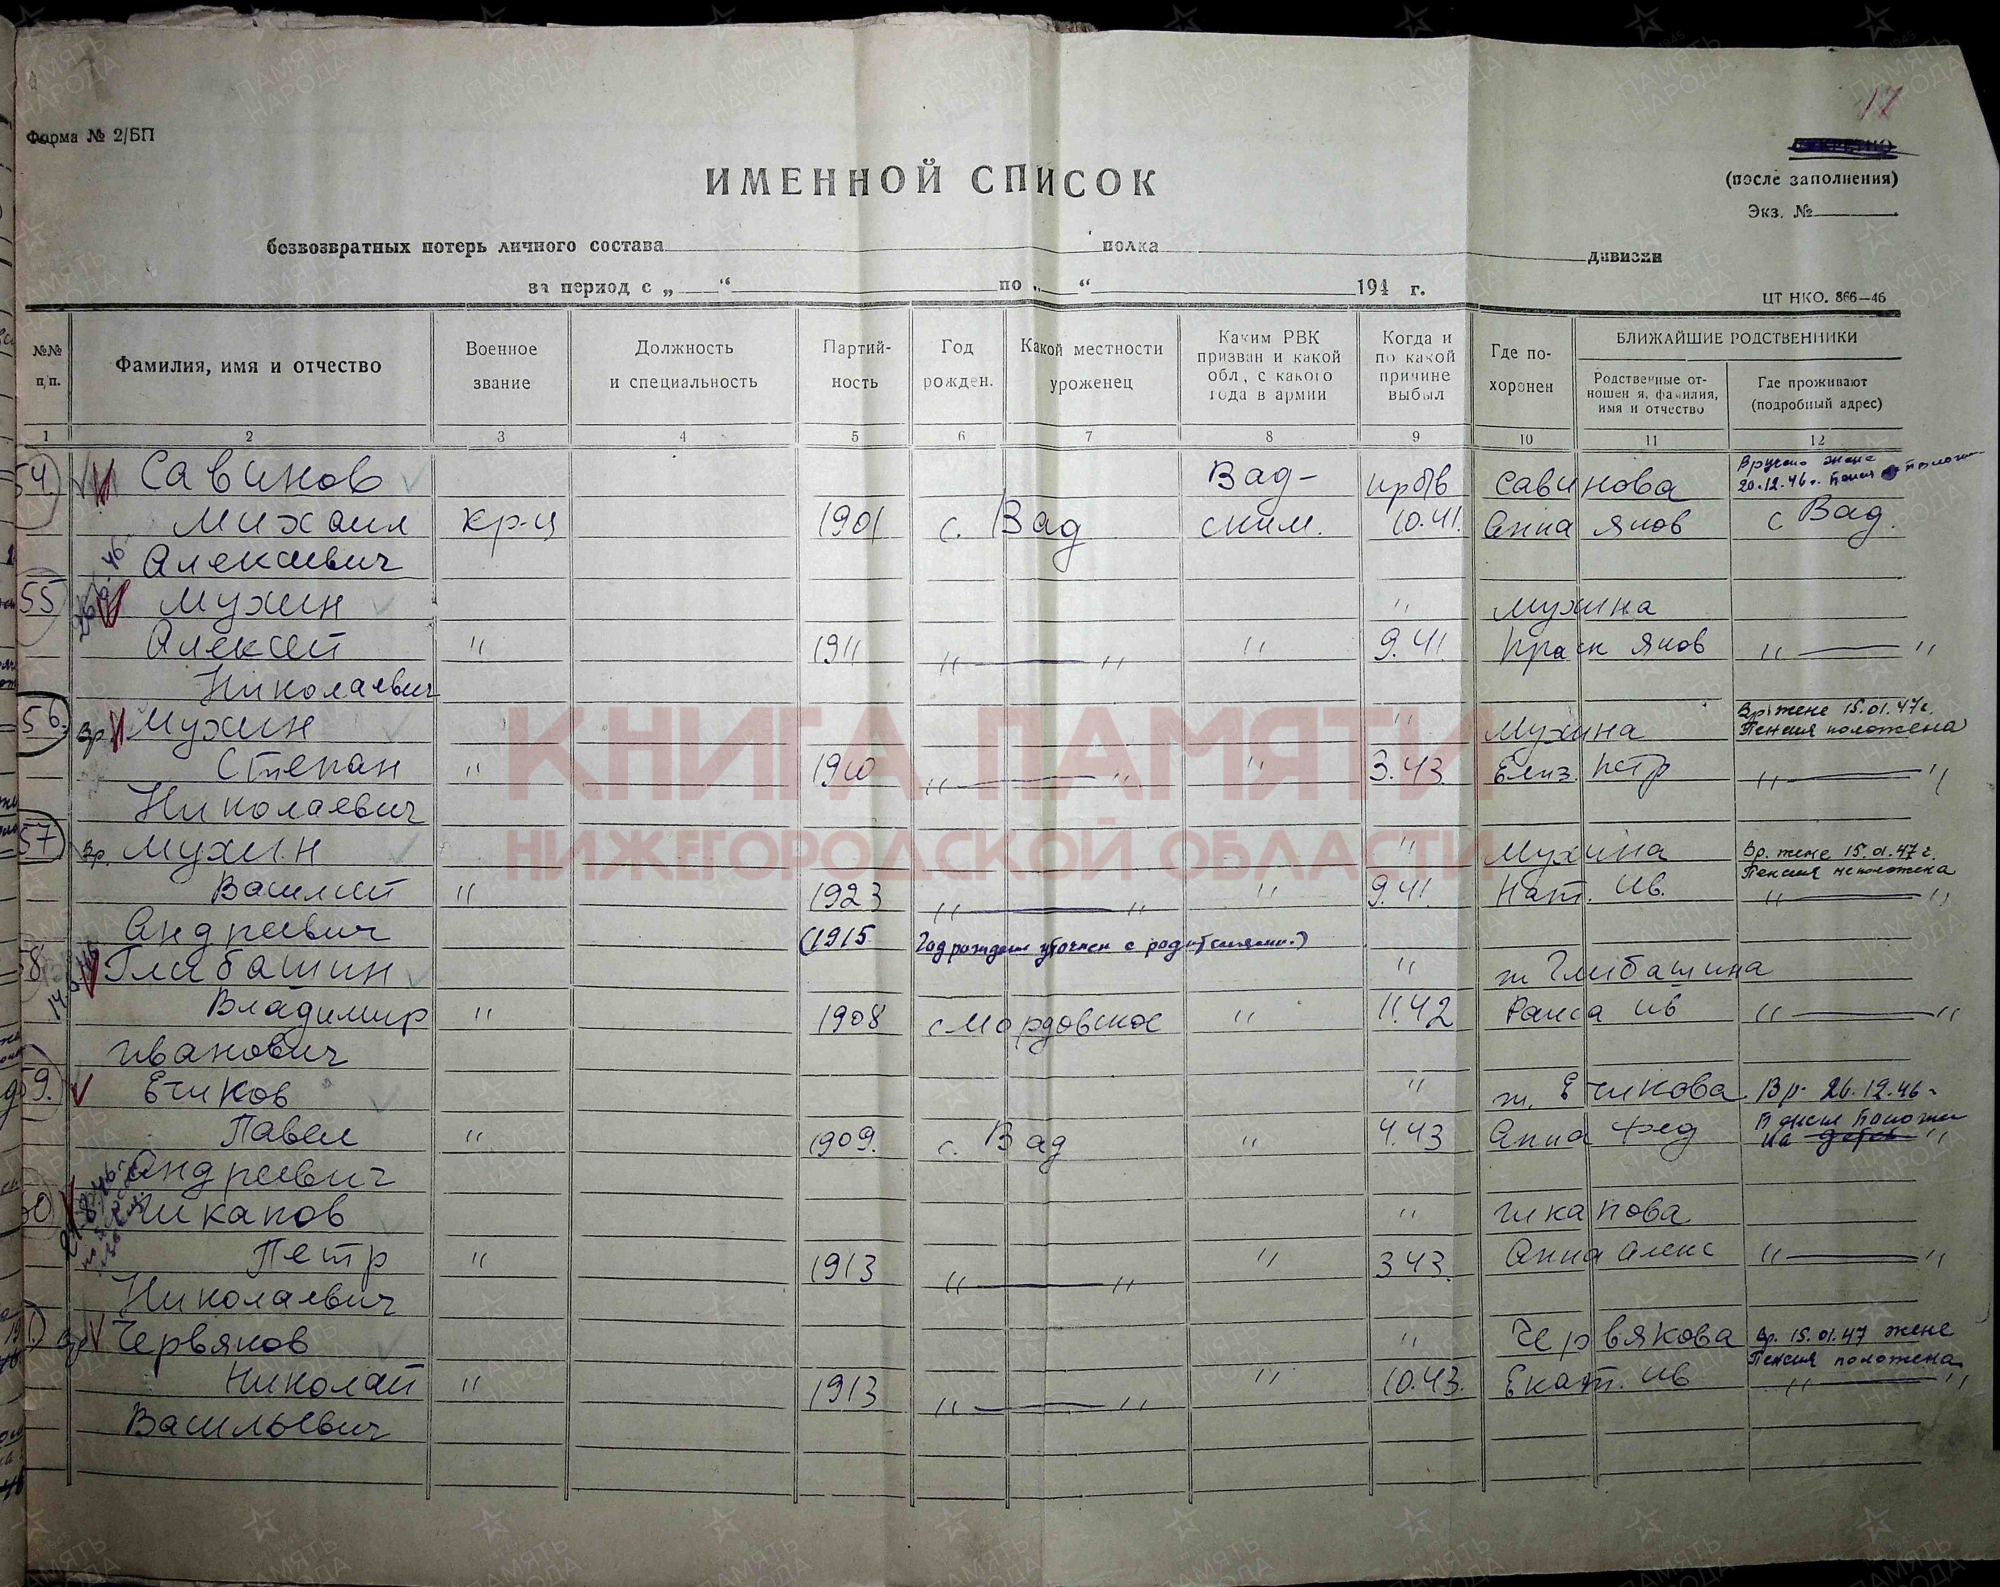 17
Форма № 2/БП
СЕКРЕТНО
(после заполнения)
Экз. №
ИМЕННОЙ СПИСОК
безвозвратных потерь личного состава полка дивизии
за период с „ “ по „ “ 194 г.
ЦТ НКО. 866—46
№№ п/п.
Фамилия, имя и отчество
Военное звание
Должность и специальность
Партий-
ность
Год рожден.
Какой местности уроженец
Каким РВК
призван и какой
обл, с какого
года в армии
Когда и
по какой
причине
выбыл
Где по-
хоронен
БЛИЖАЙШИЕ РОДСТВЕННИКИ
Родственные от-
ношен я, фамилия,
имя и отчество
Где проживают
(подробный адрес)
1 2 3 4 5 6 7 8 9 10 11 12
54. Савинов Вад- пр б/в Савинова Вручено жене
20.12.46г.
Михаил кр-ц 1901 с. Вад ским. 10.41. Анна Яков с Вад.
Алексеевич
55 Мухин " Мухина
Алексей " 1911 " — " " 9.41. Праск Яков " — "
Николаевич
56. Вр. Мухин " Мухина Вр жене 15.01.47г.
Пенсия положена
Степан " 1910 " — " " 3.43 Елиз. Петр " — "
Николаевич
57 Вр. Мухин " Мухина Вр. жене 15.01.47г.
Пенсия не положена
Василий " 1923 " — " " 9.41. Нат. Ив. " — "
Андреевич (1915 Год рождения уточнен с родителями.)
58 Глебашин " ж Глебашина
Владимир " 1908 с Мордовское " 11.42 Раиса Ив " — "
Иванович
59. Ечиков " ж. Ечикова Вр. 26.12.46г
Павел " 1909. с. Вад " 4.43 Анна Фед на детей "
Андреевич
60 Чикапов " Чикапова
Петр " 1913 " — " " 3 43. Анна Алекс " — "
Николаевич
Вр Червяков " Червякова Вр. 15.01.47 жене
Пенсия положена
Николай " 1913 " — " " 10.43. Екат. Ив " — "
Васильевич
КНИГА ПАМЯТИ
НИЖЕГОРОДСКОЙ ОБЛАСТИ
ПАМЯТЬ
НАРОДА